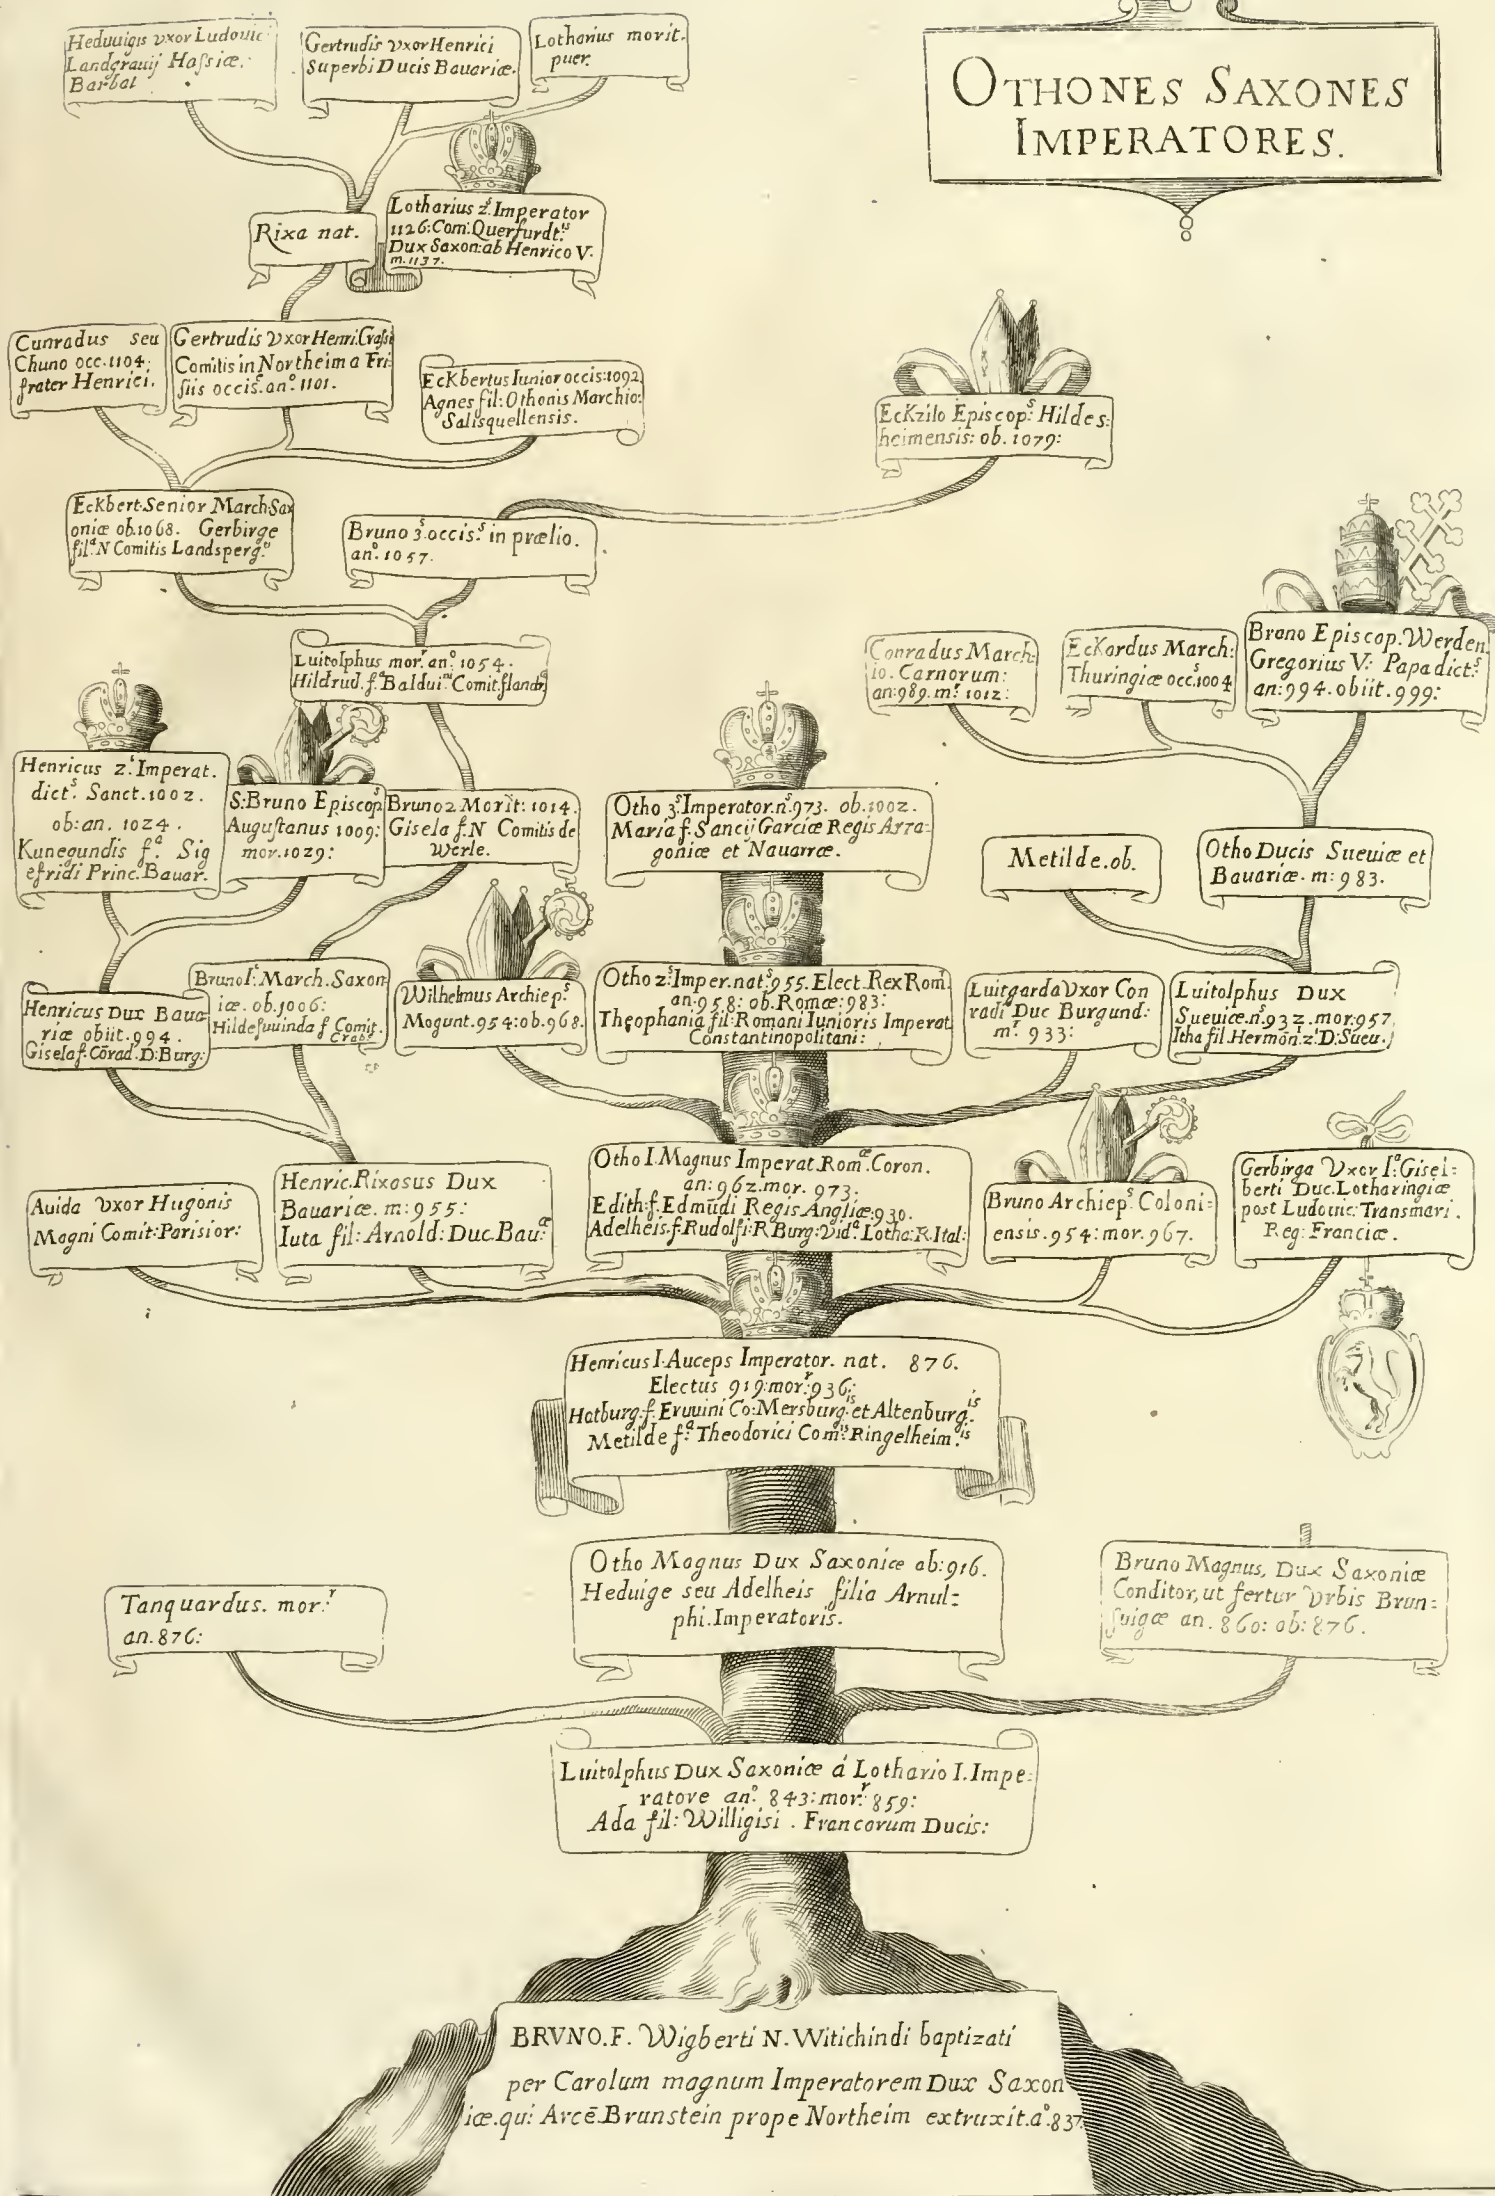 OTHONES SAXONES
IMPERATORES.
Heduuigis vxor Ludouic:
Landgrauij Hassiæ.
Barbat
Gertrudis vxor Henrici
Superbi Ducis Bauariæ.
Lotharius morit.
puer.
Rixa nat.
Lotharius 2.s Imperator
1126: Com: Querfurdt.us
Dux Saxon: ab Henrico V.
m. 1137.
Cunradus seu
Chuno occ. 1104.
frater Henrici.
Gertrudis Vxor Henri. Crassi
Comitis in Northeim a Fri
siis occis. an.o 1101.
EcKbertus Iunior occis: 1092
Agnes fil: Othonis Marchio:
Salisquellensis.
EcKzilo Episcop.s Hildes:
heimensis: ob. 1079:
EcKbert. Senior March. Sax
oniæ ob. 1068. Gerbirge
fil.a N Comitis Landsperg.
Bruno 3.s occis.s in prælio.
an.o 1057.
Luitolphus mor.r an.o 1054.
Hildrud. f.a Baldui.ni Comit. fland.
Conradus March:
io. Carnorum:
an: 989. m.r 1012:
EcKardus March:
Thuringiæ occ. 1004
Brono Episcop. Werden.
Gregorius V: Papa dict.s
an: 994. obiit. 999:
Henricus 2.s Imperat.
dict.s Sanct. 1002.
ob: an. 1024.
Kunegundis f.a Sig
efridi Princ. Bauar.
S: Bruno Episcop.s
Augustanus 1009:
mor. 1029:
Bruno 2 Morit: 1014.
Gisela f. N Comitis de
Werle.
Otho 3.s Imperator. n.s 973. ob. 1002.
Maria f. Sancij Garciæ Regis Arra:
goniæ et Nauarræ.
Metilde. ob.
Otho Ducis Sueuiæ et
Bauariæ. m: 983.
Henricus Dux Baua
riæ obiit. 994.
Gisela f. Cōrad. D: Burg:
Bruno I.s March. Saxon
iæ. ob. 1006:
Hildesuuinda f Comit.
Crab.
Wilhelmus Archiep.s
Mogunt. 954: ob. 968.
Otho 2.s Imper. nat.s 955. Elect. Rex Rom.
an. 958: ob. Romæ: 983:
Theophania fil: Romani Iunioris Imperat
Constantinopolitani:
Luitgarda Vxor Con
radi Duc Burgund:
m.r 933:
Luitolphus Dux
Sueuiæ. n.s 932. mor: 957
Itha fil. Hermōn. 2.i D: Sueu.
Auida Vxor Hugonis
Magni Comit: Parisior:
Henric. Rixosus Dux
Bauariæ. m: 955:
Iuta fil: Arnold: Duc Bau.æ
Otho I. Magnus Imperat. Rom.æ Coron.
an: 962. mor. 973.
Edith. f. Edmūdi Regis Angliæ: 930.
Adelheis. f. Rudolfi: R Burg: Vid.a Lotha: R. Ital:
Bruno Archiep.s Coloni:
ensis. 954: mor. 967.
Gerbirga Vxor I.a Gisel:
berti Duc. Lotharingiæ
post Ludouic: Transmari.
Reg: Franciæ.
Henricus I. Auceps Imperator. nat. 876.
Electus 919: mor.r 936:
Hatburg. f. Eruuini Co: Mersburg.is et Altenburg.is
Metilde f.a Theodorici Com.is Ringelheim.is
Otho Magnus Dux Saxoniæ ob: 916.
Heduige seu Adelheis filia Arnul:
phi. Imperatoris.
Tanquardus. mor.r
an. 876:
Bruno Magnus, Dux Saxoniæ
Conditor, ut fertur Vrbis Brun:
suigæ an. 860: ob: 876.
Luitolphus Dux Saxoniæ á Lothario I. Impe:
ratore an.o 843: mor.r 859:
Ada fil: Willigisi. Francorum Ducis:
BRVNO. F. Wigberti N. Witichindi baptizati
per Carolum magnum Imperatorem Dux Saxon
iæ. qui Arcē Brunstein prope Northeim extruxit. a.o 837